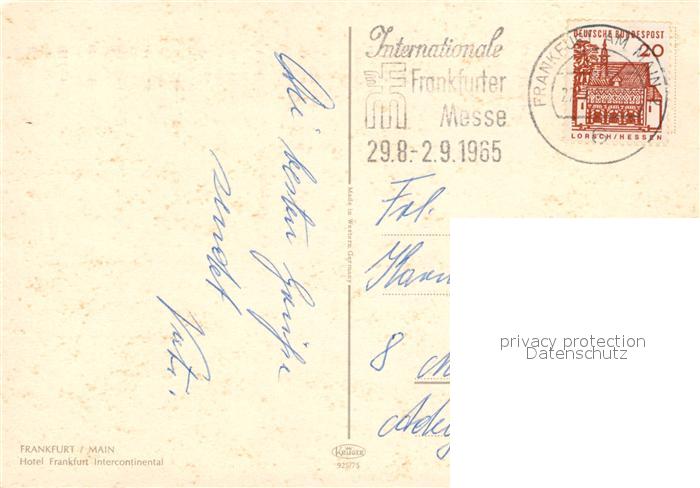 Internationale
Frankfurter
Messe
29.8.-2.9.1965
DEUTSCHE BUNDESPOST
20
LORSCH/HESSEN
FRANKFURT AM MAIN
Die besten Grüße
sendet
Vati.
Made in Western Germany
Frl.
8
privacy protection
Datenschutz
FRANKFURT / MAIN
Hotel Frankfurt Intercontinental
KRÜGER
925/75